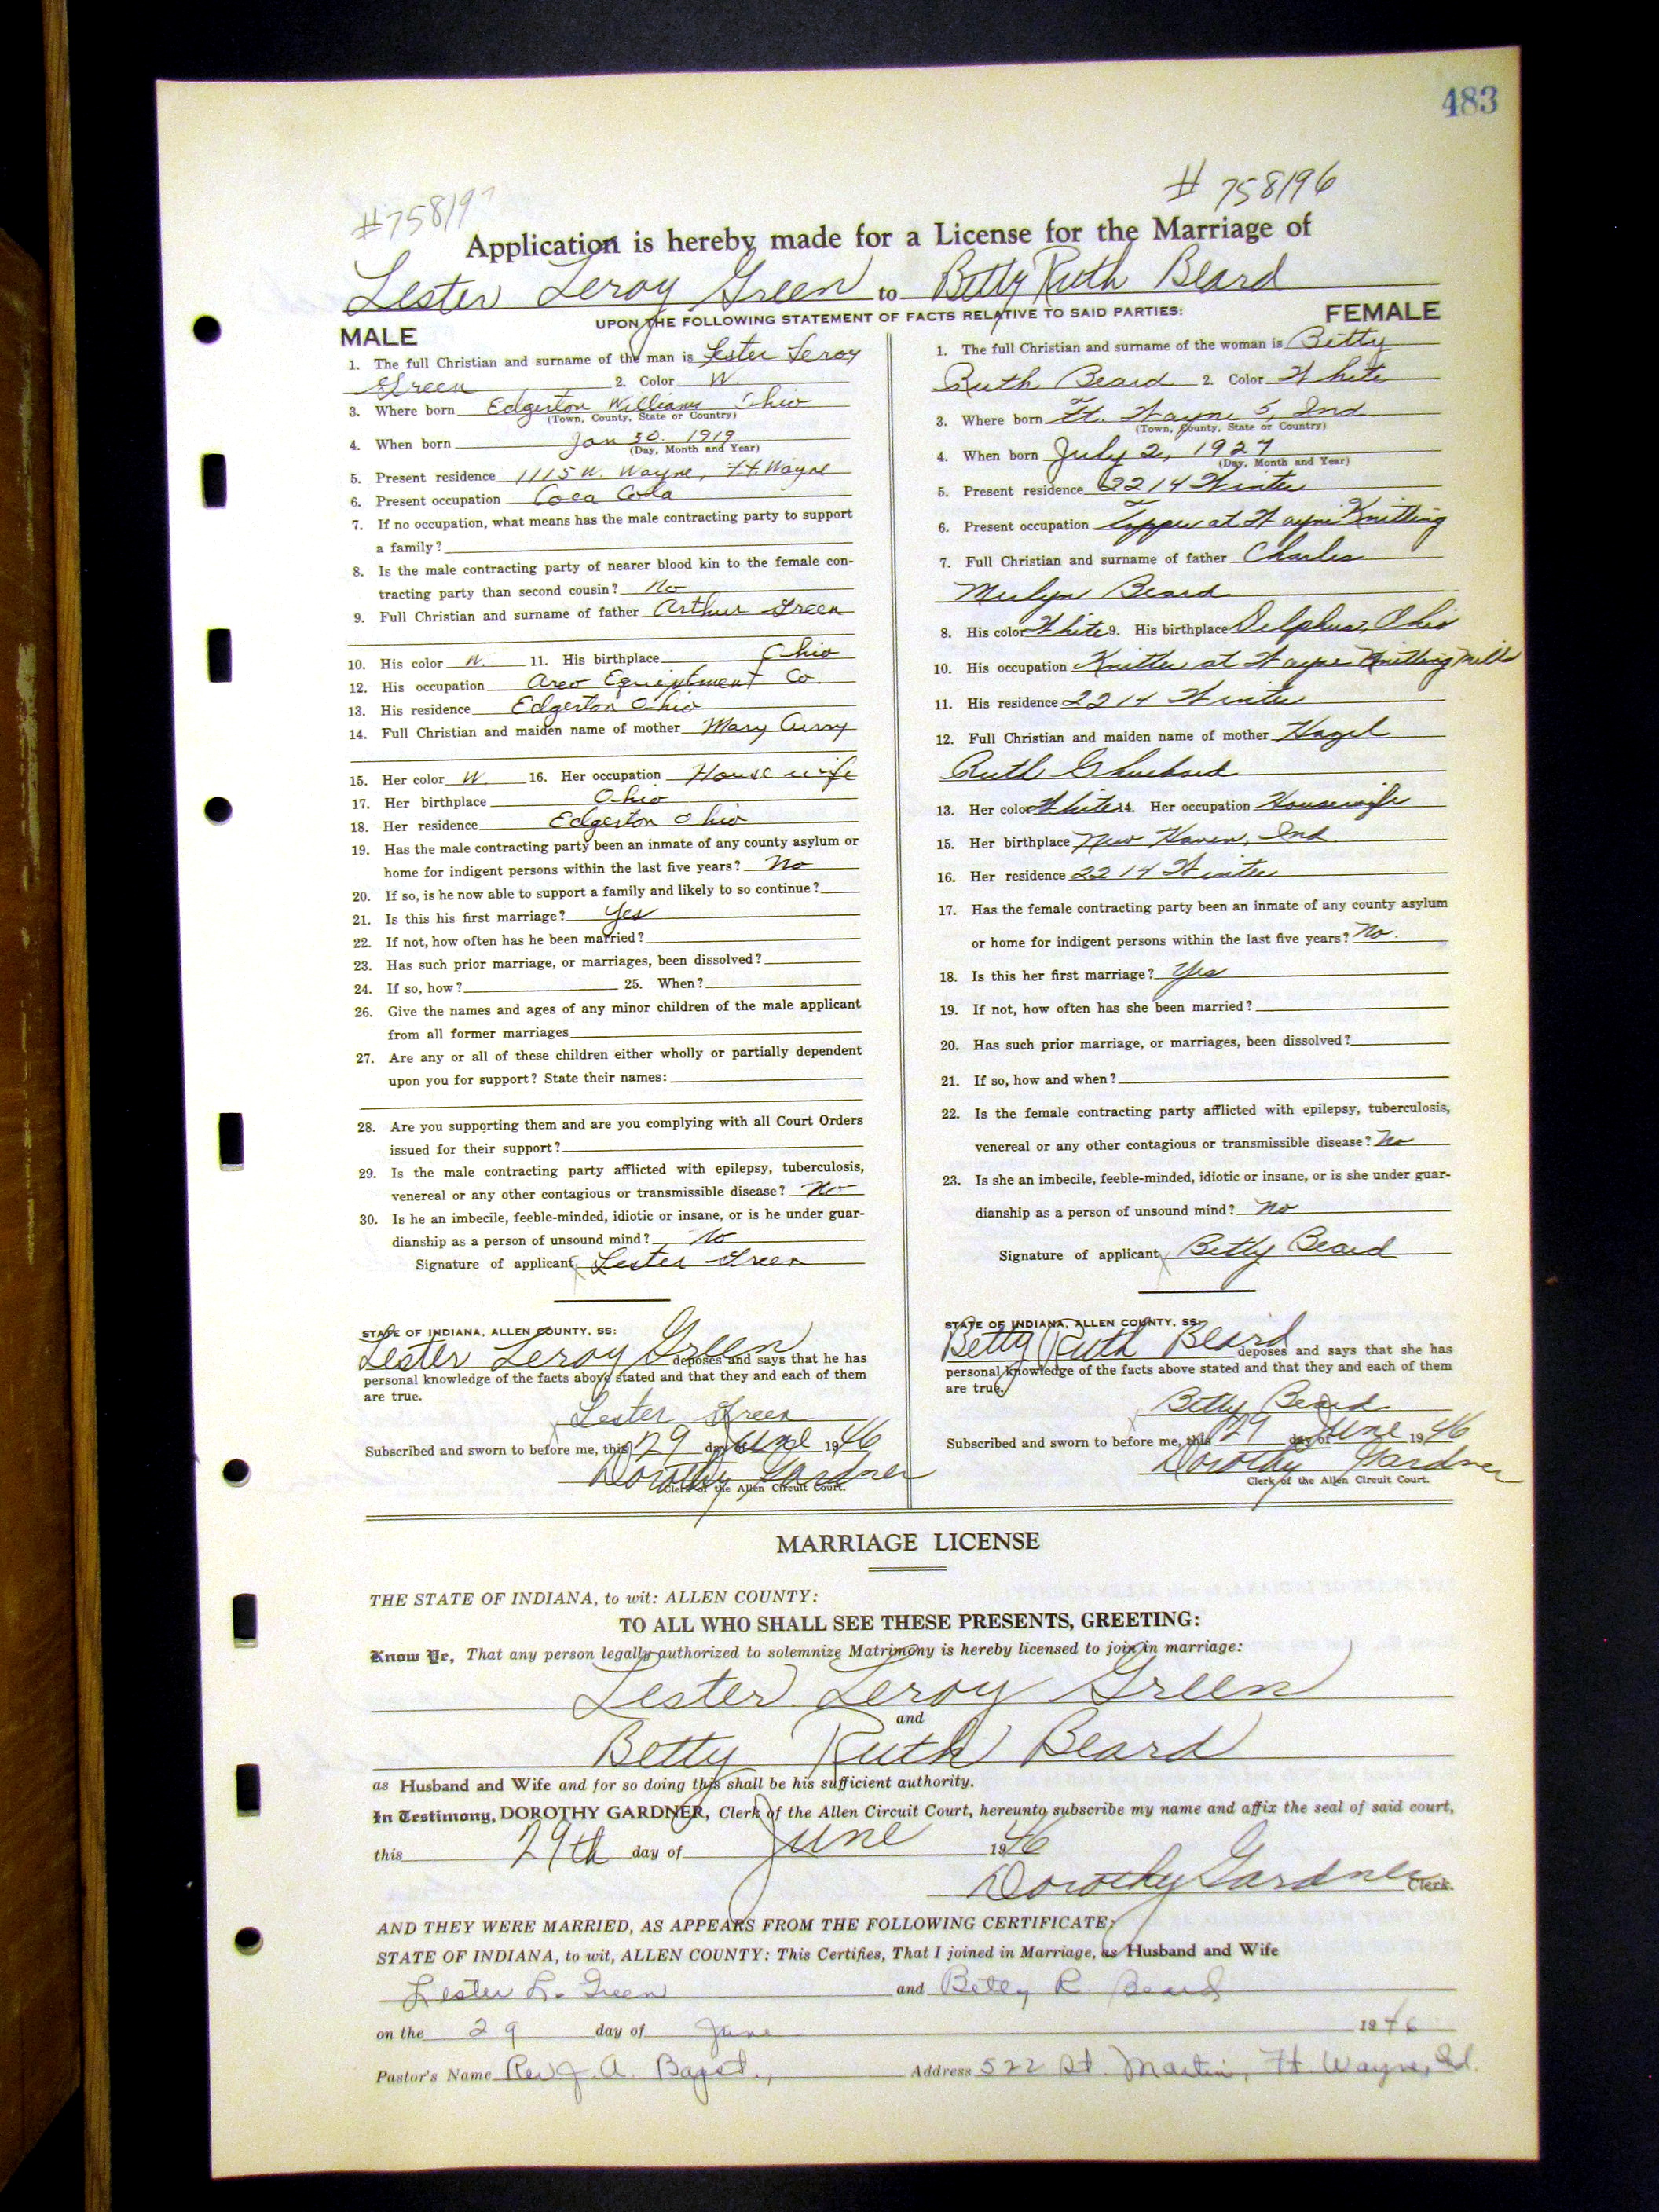 483
#75819
# 758196
Application is hereby made for a License for the Marriage of
Lester Leroy Green to Betty Ruth Beard
UPON THE FOLLOWING STATEMENT OF FACTS RELATIVE TO SAID PARTIES:
MALE
1. The full Christian and surname of the man is Lester Leroy
Green 2. Color W.
3. Where born Edgerton Williams Ohio
(Town, County, State or Country)
4. When born Jan 30. 1919
(Day, Month and Year)
5. Present residence 1115 W. Wayne, Ft. Wayne
6. Present occupation Coca Cola
7. If no occupation, what means has the male contracting party to support
a family?
8. Is the male contracting party of nearer blood kin to the female con-
tracting party than second cousin? No
9. Full Christian and surname of father Arthur Green
10. His color W. 11. His birthplace Ohio
12. His occupation Areo Equiptment Co
13. His residence Edgerton Ohio
14. Full Christian and maiden name of mother Mary Curry
15. Her color W 16. Her occupation House wife
17. Her birthplace Ohio
18. Her residence Edgerton Ohio
19. Has the male contracting party been an inmate of any county asylum or
home for indigent persons within the last five years? No
20. If so, is he now able to support a family and likely to so continue?
21. Is this his first marriage? Yes
22. If not, how often has he been married?
23. Has such prior marriage, or marriages, been dissolved?
24. If so, how? 25. When?
26. Give the names and ages of any minor children of the male applicant
from all former marriages
27. Are any or all of these children either wholly or partially dependent
upon you for support? State their names:
28. Are you supporting them and are you complying with all Court Orders
issued for their support?
29. Is the male contracting party afflicted with epilepsy, tuberculosis,
venereal or any other contagious or transmissible disease? No
30. Is he an imbecile, feeble-minded, idiotic or insane, or is he under guar-
dianship as a person of unsound mind? No
Signature of applicant Lester Green
STATE OF INDIANA, ALLEN COUNTY, SS:
Lester Leroy Green deposes and says that he has
personal knowledge of the facts above stated and that they and each of them
are true.
Lester Green
Subscribed and sworn to before me, this 29 day of June 1946
Dorothy Gardner
Clerk of the Allen Circuit Court.
FEMALE
1. The full Christian and surname of the woman is Betty
Ruth Beard 2. Color White
3. Where born Ft. Wayne 5, Ind
(Town, County, State or Country)
4. When born July 2, 1927
(Day, Month and Year)
5. Present residence 2214 Winter
6. Present occupation Topper at Wayne Knitting
7. Full Christian and surname of father Charles
Merlyn Beard
8. His color White 9. His birthplace Delphus, Ohio
10. His occupation Knitter at Wayne Knitting Mills
11. His residence 2214 Winter
12. Full Christian and maiden name of mother Hazel
Ruth
13. Her color White 14. Her occupation Housewife
15. Her birthplace New Haven, Ind.
16. Her residence 2214 Winter
17. Has the female contracting party been an inmate of any county asylum
or home for indigent persons within the last five years? No.
18. Is this her first marriage? Yes
19. If not, how often has she been married?
20. Has such prior marriage, or marriages, been dissolved?
21. If so, how and when?
22. Is the female contracting party afflicted with epilepsy, tuberculosis,
venereal or any other contagious or transmissible disease? No
23. Is she an imbecile, feeble-minded, idiotic or insane, or is she under guar-
dianship as a person of unsound mind? No
Signature of applicant Betty Beard
STATE OF INDIANA, ALLEN COUNTY, SS:
Betty Ruth Beard deposes and says that she has
personal knowledge of the facts above stated and that they and each of them
are true.
Betty Beard
Subscribed and sworn to before me, this 29 day of June 1946
Dorothy Gardner
Clerk of the Allen Circuit Court.
MARRIAGE LICENSE
THE STATE OF INDIANA, to wit: ALLEN COUNTY:
TO ALL WHO SHALL SEE THESE PRESENTS, GREETING:
Know Ye, That any person legally authorized to solemnize Matrimony is hereby licensed to join in marriage:
Lester Leroy Green
and
Betty Ruth Beard
as Husband and Wife and for so doing this shall be his sufficient authority.
In Testimony, DOROTHY GARDNER, Clerk of the Allen Circuit Court, hereunto subscribe my name and affix the seal of said court,
this 29th day of June 1946
Dorothy Gardner Clerk.
AND THEY WERE MARRIED, AS APPEARS FROM THE FOLLOWING CERTIFICATE:
STATE OF INDIANA, to wit, ALLEN COUNTY: This Certifies, That I joined in Marriage, as Husband and Wife
Lester L. Green and Betty R. Beard
on the 29 day of June 1946
Pastor's Name Rev J. A. Address 522 St. Martin, Ft. Wayne, Ind.